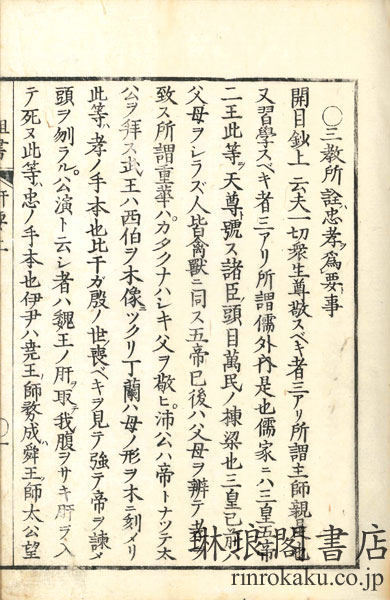 ○三教所詮忠孝爲要事
開目鈔上云夫一切衆生尊敬スベキ者三アリ所謂主師親是也
又習學スベキ者三アリ所謂儒外內是也儒家ニハ三皇五帝
二王此等ヲ天尊ト號ス諸臣ノ頭目萬民ノ棟梁也三皇已前ハ
父母ヲシラズ人皆禽獸ニ同ス五帝已後ハ父母ヲ辨テ孝ヲ
致ス所謂重華ハカタクナハシキ父ヲ敬ヒ沛公ハ帝トナツテ太
公ヲ拜ス武王ハ西伯ヲ木像ニツクリ丁蘭ハ母ノ形ヲ木ニ刻メリ
此等ハ孝ノ手本也比干ガ殷ノ世喪ベキヲ見テ強テ帝ヲ諫メ
頭ヲ刎ラル公演ト云シ者ハ魏王ノ肝ヲ取テ我腹ヲサキ肝ヲ入
テ死ヌ此等ハ忠ノ手本也伊尹ハ堯王ノ師務成ハ舜王ノ師太公望
琳琅閣書店
rinrokaku.co.jp